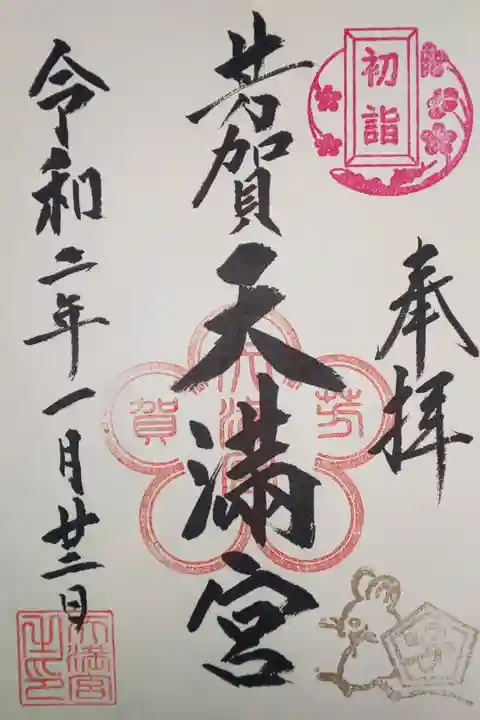 初詣
奉拝
芳賀天満宮
芳賀
天満宮
令和二年一月廿二日
天満宮之印